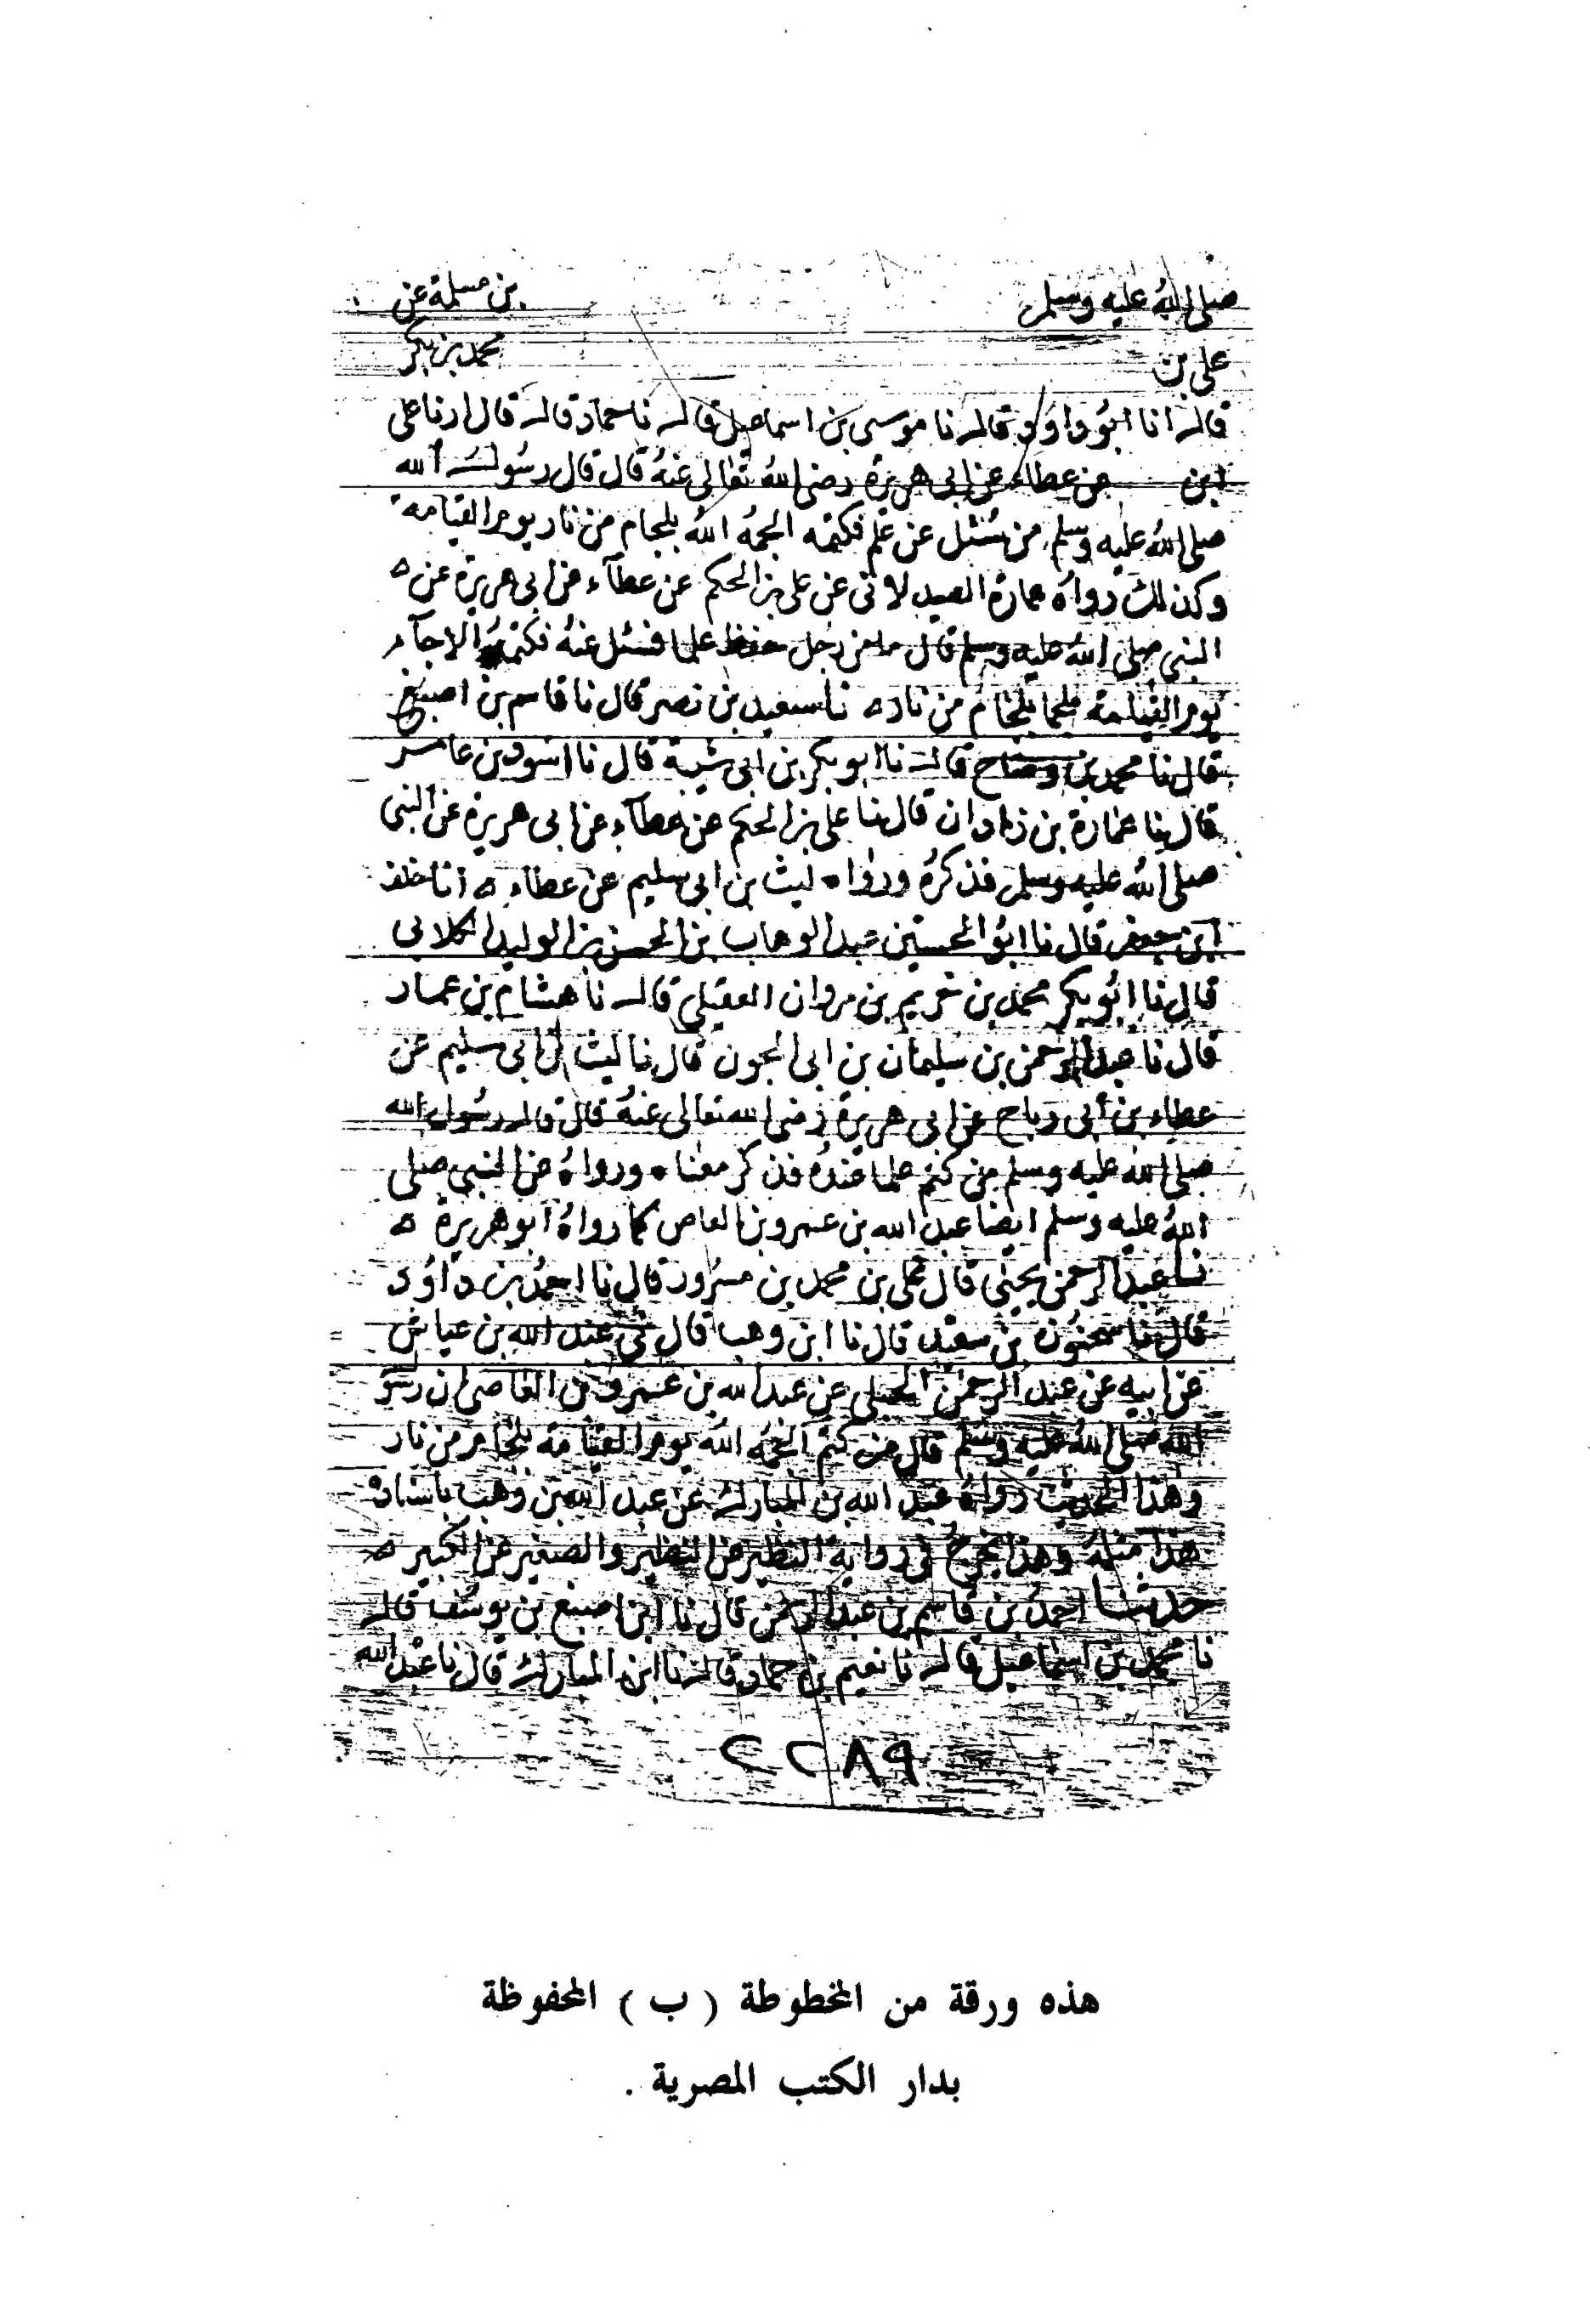 صلى الله عليه وسلم بن مسلمة عن
على بن محمد بن بكر
قال انا ابُو داوُد قال نا موسى بن اسماعيل قال نا حماد قال قال ارنا على
ابن عن عطاء عن ابى هريرة رضى اللهُ تعالى عنهُ قال قال رسُول الله
صلى اللهُ عليه وسلم من سُئل عن علم فكتمه الجمهُ اللهُ بلجام من نار يوم القيامة
وكذلك رواهُ عمارة الصيدلانى عن على بن الحكم عن عطآء عن ابى هريرة عن ه
النبى صلى اللهُ عليه وسلم قال ما من رجل حفظ علما فسئل عنهُ فكتمهُ الا جآء
يوم القيامة ملجما بلجام من نار ه نا سعيد بن نصر قال نا قاسم بن اصبغ
قال نا محمد بن وضاح قال نا ابو بكر بن ابى شيبة قال نا اسود بن عامر
قال نا عمارة بن زادان قال نا على بن الحكم عن عطآء عن ابى هريرة عن النبى
صلى الله عليه وسلم فذكرهُ ورواه ليث بن ابى سليم عن عطاء ه انا خلف
ابن جعفر قال نا ابُو الحسين عبد الوهاب بن الحسن بن الوليد الكلابى
قال نا ابُو بكر محمد بن خريم بن مروان العقيلى قال نا هشام بن عمار
قال نا عبد الرحمن بن سليمان بن ابى الجون قال نا ليث بن ابى سليم عن
عطاء بن أبى رباح عن ابى هريرة رضى الله تعالى عنهُ قال قال رسُول الله
صلى الله عليه وسلم من كتم علما عندهُ فذكر معناه ورواهُ عن النبى صلى
اللهُ عليه وسلم ايضا عبد الله بن عمرو بن العاص كما رواهُ ابو هريرة ه
نا عبد الرحمن يحيى قال على بن محمد بن مسرُور قال نا احمدُ بن داوُد
قال نا سحنُون بن سعيد قال نا ابن وهب قال نى عبد الله بن عياش
عن ابيه عن عبد الرحمن الحبلى عن عبد الله بن عمرو بن العاصى ان رسُو
الله صلى اللهُ عليه وسلم قال من كتم الجمهُ اللهُ يوم القيامة بلجام من نار
وهذا الحديث رواهُ عبد الله بن المبارك عن عبد الله بن وهب باسناده
هذا مثلهُ وهذا يخرجُ فى رواية النظير عن النظير والصغير عن الكبير ه
حدثنا احمدُ بن قاسم بن عبد الرحمن قال نا ابن اصبغ بن يوسُف قال
نا محمد بن اسماعيل قال نا نعيم بن حماد قال نا ابن المبارك قال نا عبد الله
٢٢٨٩
هذه ورقة من المخطوطة ( ب ) المحفوظة
بدار الكتب المصرية .